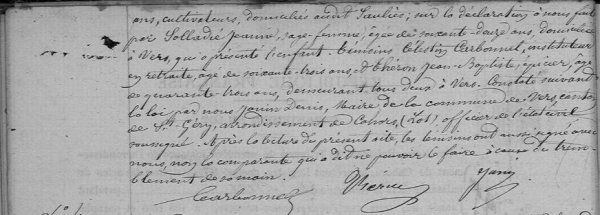 ans, cultivateurs, domiciliés audit Sauliès; sur la déclaration à nous faite
par Solladié Jeanne, sage-femme, âgée de soixante-douze ans, domiciliée
à Vers, qui a présenté l'enfant. Témoins Célestin Carbonnel, instituteur
en retraite, âgé de soixante-trois ans, et Théron Jean-Baptiste, épicier, âgé
de quarante-trois ans, demeurant tous deux à Vers. Constaté suivant
la loi par nous Denis, Maire de la commune de Vers, canton
de St Géry, arrondissement de Cahors, (Lot) officier de l'état civil
soussigné. Après la lecture du présent acte, les témoins ont aussi signé avec
nous, non la comparante qui a dit ne pouvoir le faire à cause du trem-
blement de sa main.
Carbonnel Théron